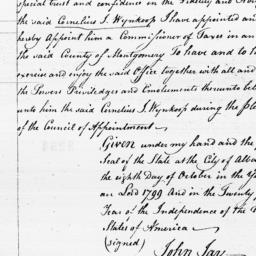 special trust and confidence in the Fidelity and
the said Cornelius I. Wynkoop I have appointed and
hereby Appoint him a Commissioner of Taxes in an
the said County of Montgomery To have and to h
exercise and enjoy the said Office together with all and
the Powers Priviledges and Emoluments thereunto belo
unto him the said Cornelius I. Wynkoop during the ple
of the Council of Appointment
Given under my hand and the p
Seal of the State at the City of Alba
the eighth Day of October in the Y
our Lord 1799 And in the Twenty f
Year of the Independence of the U
States of America
(signed)
John Jay